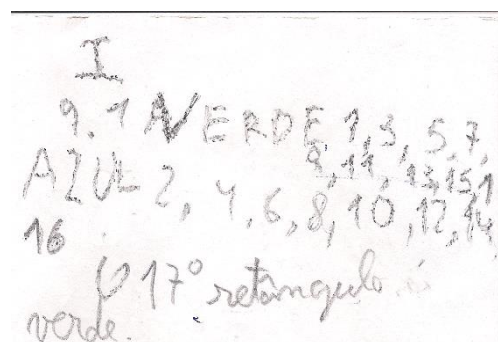 I
9.1 A VERDE 1, 3, 5, 7,
9, 11, 13, 15, 1
AZUL 2, 4, 6, 8, 10, 12, 14,
16
O 17º retângulo é
verde.